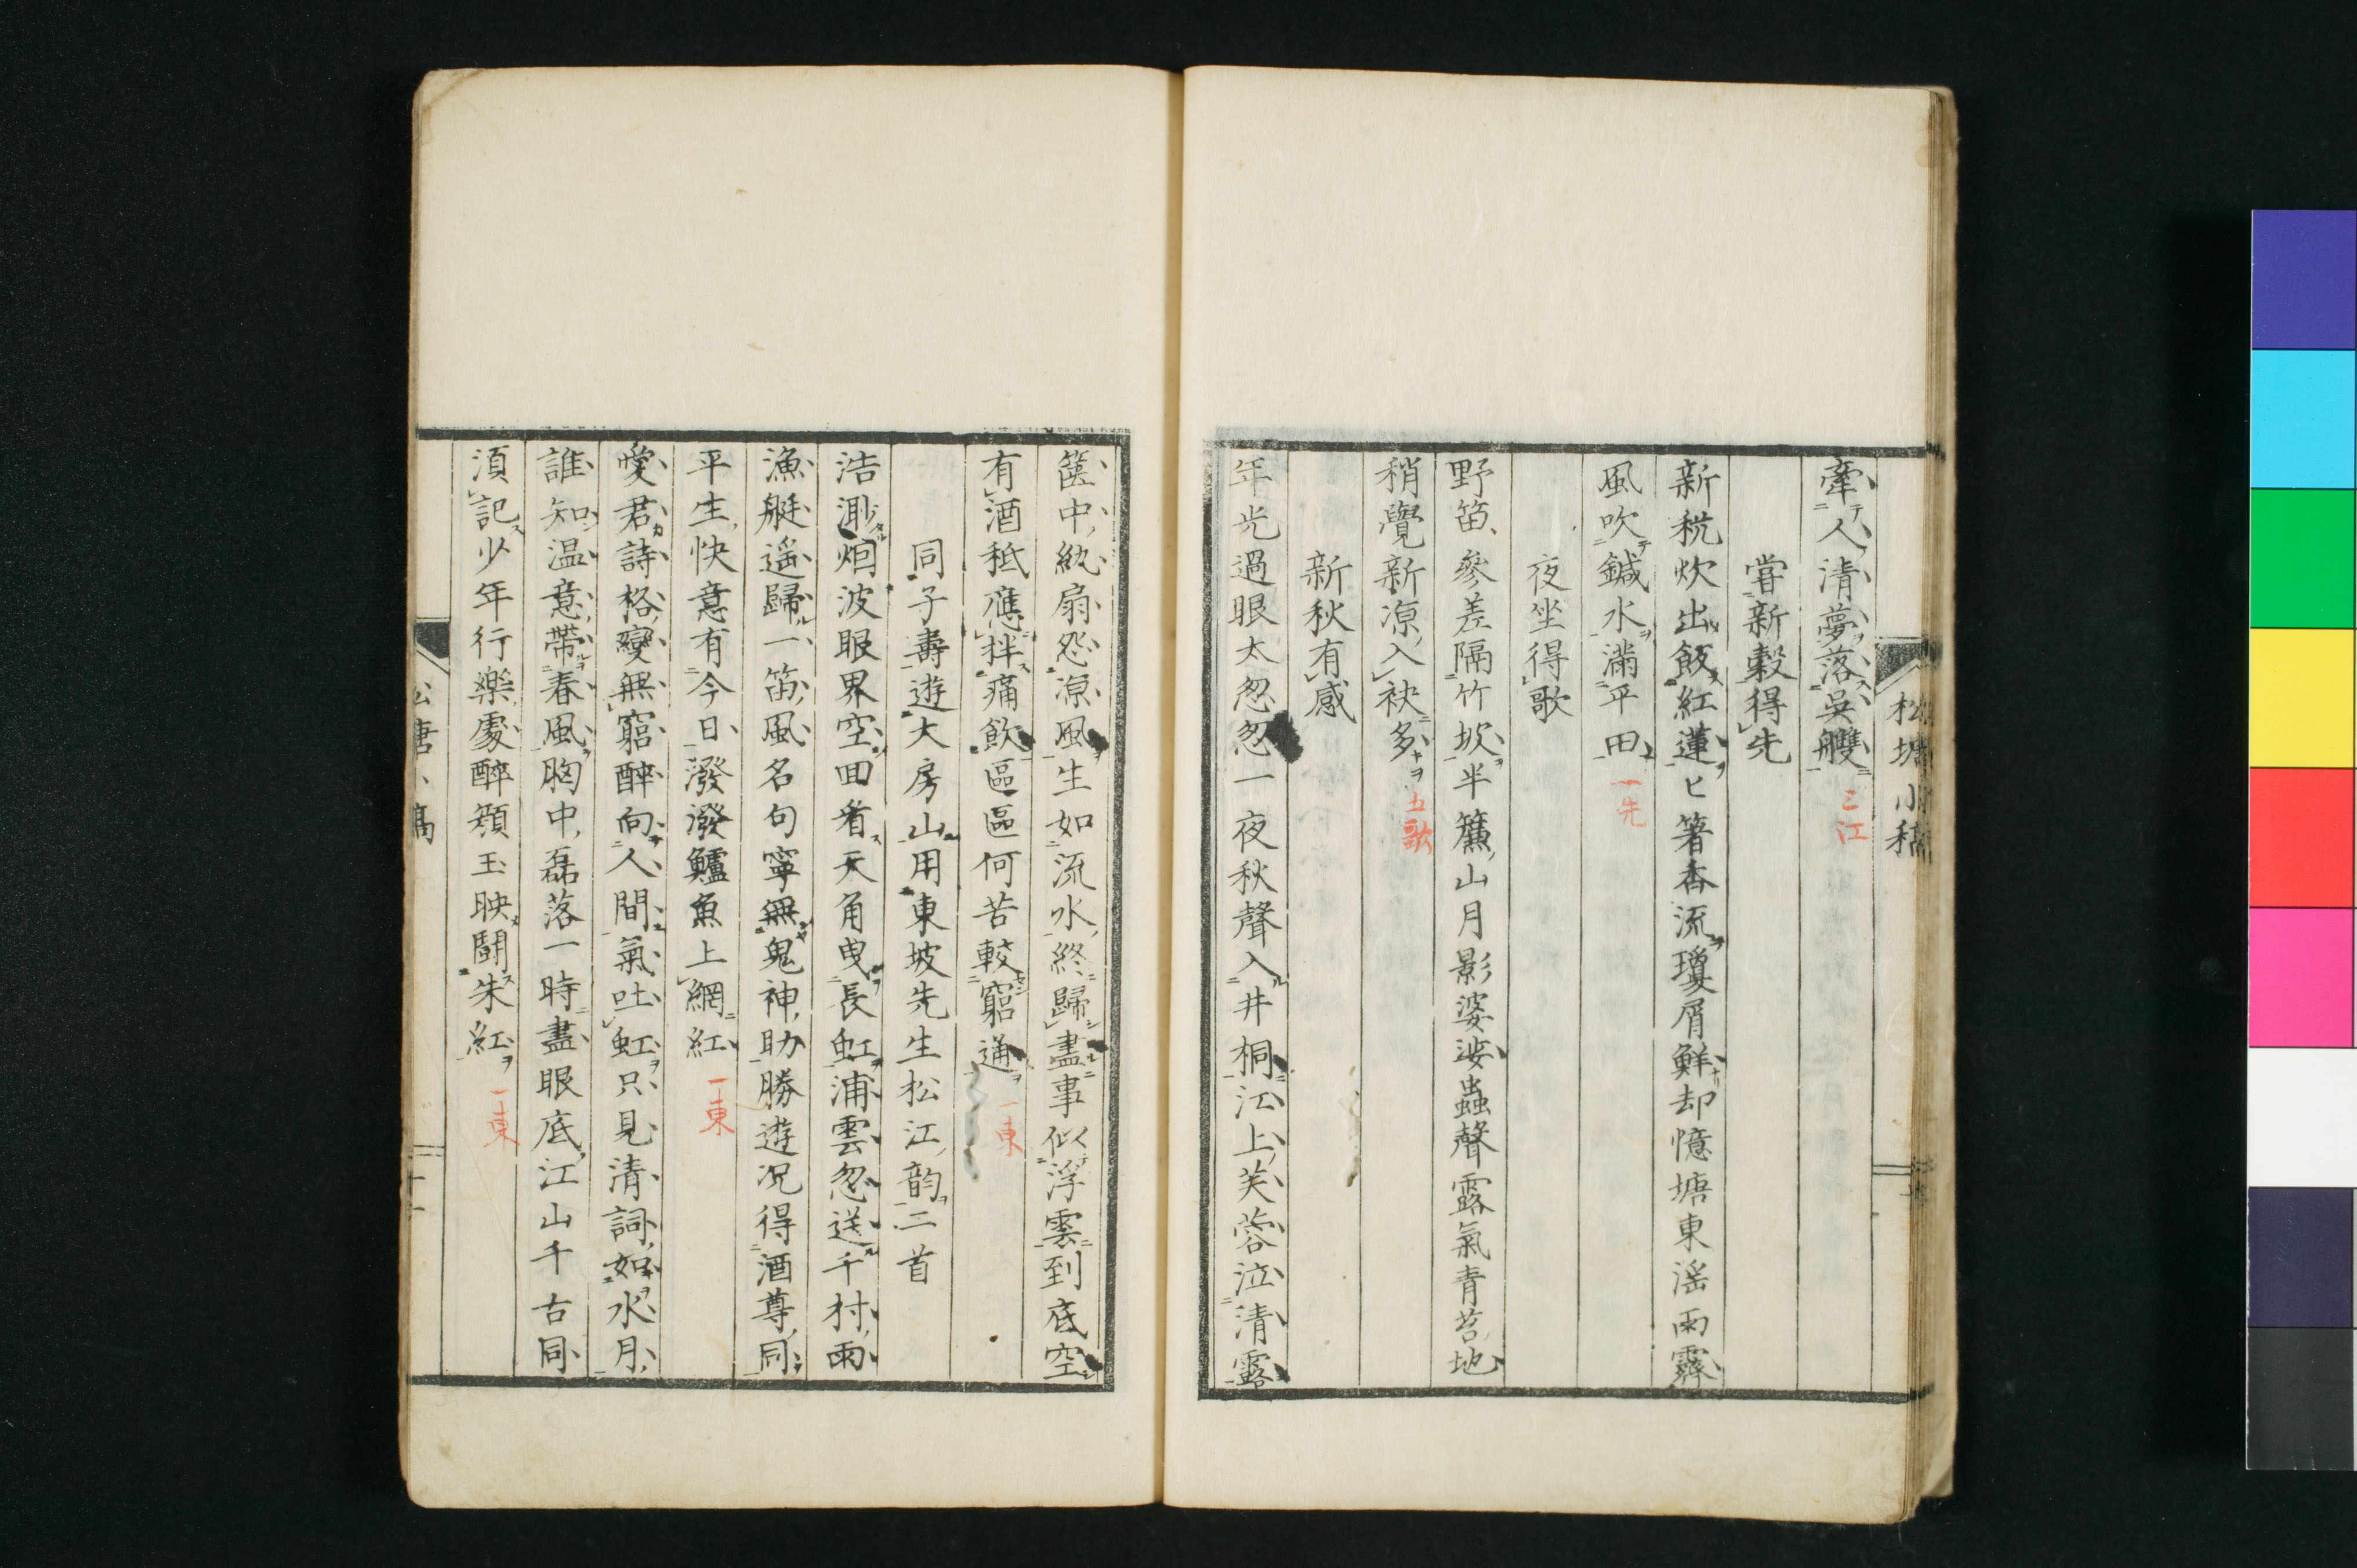 松塘小稿
牽人清夢落吳艭 三江
嘗新穀得先
新秔炊出飯紅蓮匕箸香流瓊屑鮮却憶塘東滛雨霽
風吹鍼水滿平田 一先
夜坐得歌
野笛參差隔竹坡半簾山月影婆娑蟲聲露氣青苔地
稍覺新涼入袂多 五歌
新秋有感
年光過眼太忽忽一夜秋聲入井桐江上芙蓉泣清露
篋中紈扇怨涼風生如流水終歸盡事似浮雲到底空
有酒秪應拌痛飲區區何苦較窮通 一東
同子壽遊大房山用東坡先生松江韵二首
浩渺烟波眼界空回看天角曳長虹浦雲忽送千村雨
漁艇遥歸一笛風名句寧無鬼神助勝遊况得酒尊同
平生快意有今日潑潑鱸魚上網紅 一東
愛君詩格變無窮醉向人間氣吐虹只見清詞如水月
誰知温意帶春風胸中磊落一時盡眼底江山千古同
須記少年行樂處醉頰玉映鬪朱紅 一東